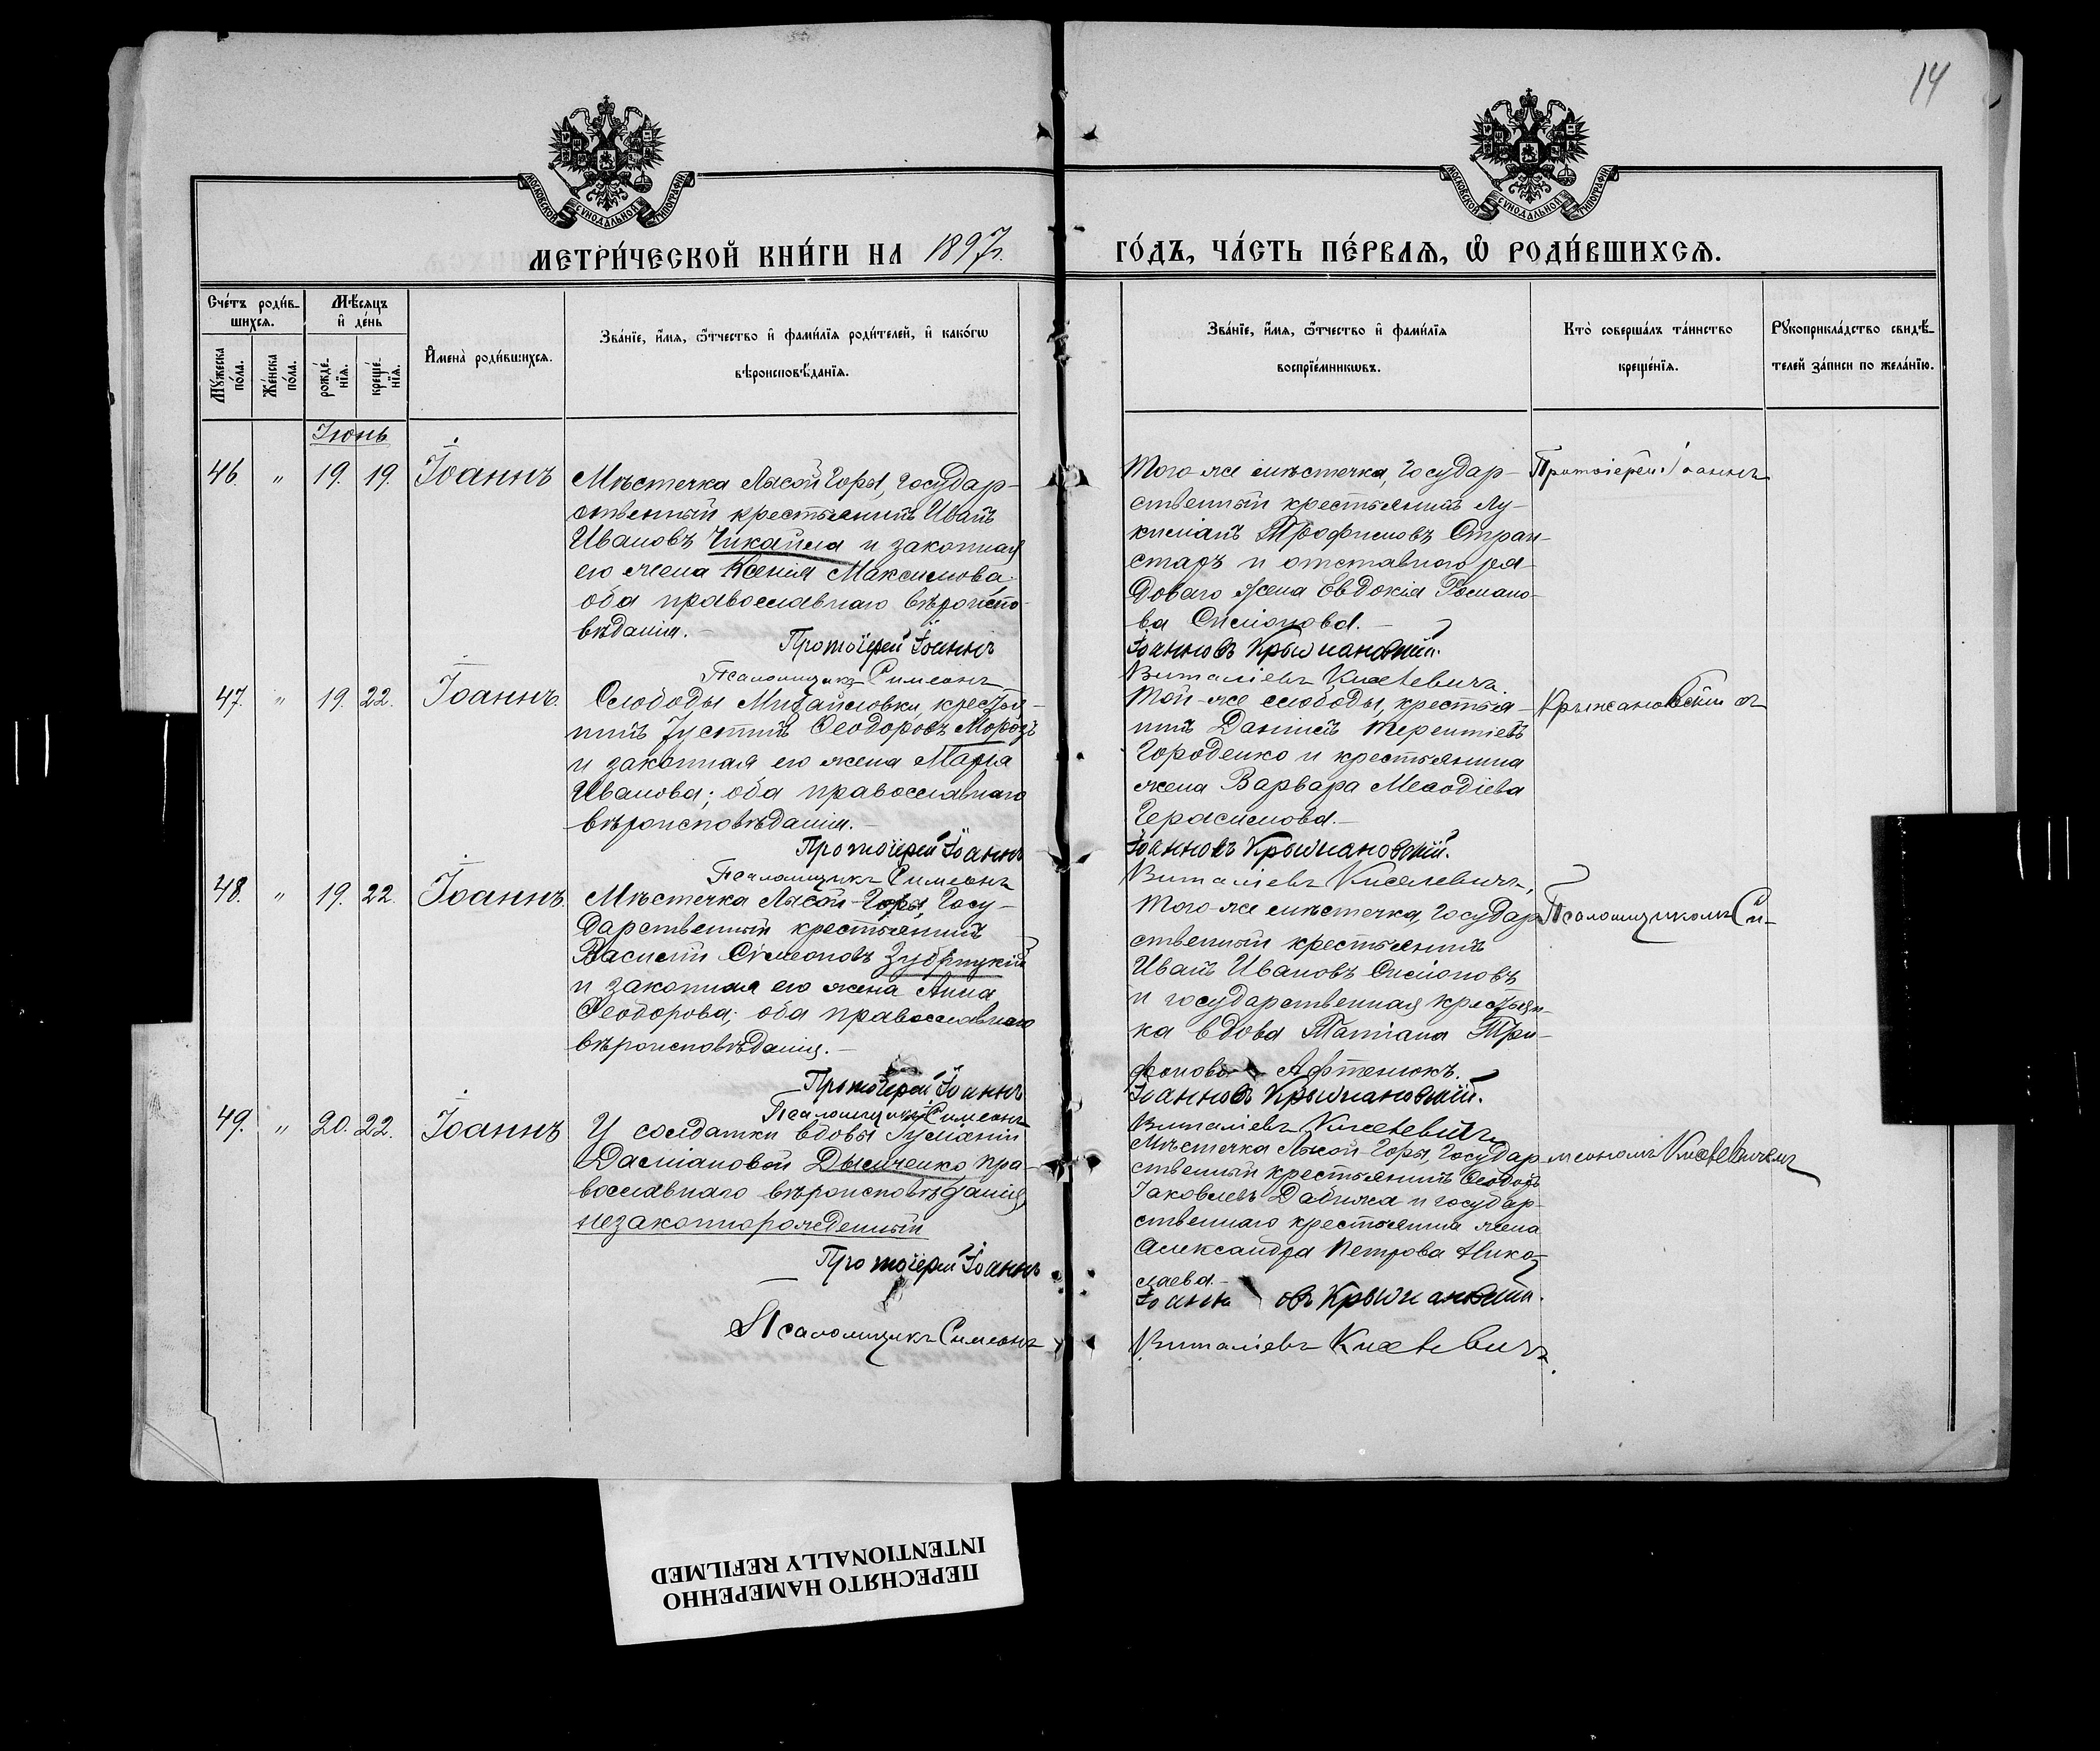 14
МОСКОВСКОЙ СѴНОДАЛЬНОЙ ТИПОГРАФІИ
МОСКОВСКОЙ СѴНОДАЛЬНОЙ ТИПОГРАФІИ
МЕТРИ́ЧЕСКОЙ КНИ́ГИ НА 1897г.
ГО́ДЪ, ЧА́СТЬ ПЕ́РВАѦ, Ѽ РОДИ́ВШИХСѦ.
Сче́тъ роди́в-
шихсѧ.
Мѣ́сѧцъ
и҆ де́нь
Мꙋ́жеска
по́ла.
Же́нска
по́ла.
рожде́-
нїѧ.
креще́-
нїѧ.
И҆мена̀ роди́вшихсѧ.
Зва́нїе, и҆́мѧ, ѻ҆́тчество и҆ фами́лїѧ роди́телей, и҆ како́гѡ
вѣроисповѣ́данїѧ.
Зва́нїе, и҆́мѧ, ѻ҆́тчество и҆ фами́лїѧ
воспрїе́мникѡвъ.
Кто̀ соверша́лъ та́инство
креще́нїѧ.
Рꙋкоприкла́дство свидѣ́-
телей за́писи по жела́нїю.
Іюнь
46. " 19. 19. Іоаннъ
Мѣстечка Лысой Горы, Государ-
ственный крестьянинъ Иванъ
Ивановъ Чикайла и законная
его жена Ксенія Максимова;
оба православнаго вѣроиспо-
вѣданія.-
Протоіерей Іоаннъ
Псаломщикъ Симеонъ
Того-же мѣстечка, Государ-
ственный крестьянинъ Лу-
киліанъ Трофимовъ
и отставного ря-
доваго жена Евдокія Романо-
ва Симонова.-
Іоанновъ Крыжановскій.
Виталіевъ Киселевичъ.
Протоіерей Іоаннъ
47. " 19. 22. Іоаннъ.
Слободы Михайловки, крестья-
нинъ Іустинъ Ѳеодоровъ Морозъ
и законная его жена Марія
Иванова; оба православнаго
вѣроисповѣданія.-
Протоіерей Іоаннъ
Псаломщикъ Симеонъ
Той-же слободы, крестья-
нинъ Даніилъ Терентіевъ
Городенко и крестьянина
жена Варвара Меѳодіева
Герасимова.-
Іоанновъ Крыжановскій.
Виталіевъ Киселевичъ.
Крыжановскій съ
48. " 19. 22. Іоаннъ.
Мѣстечка Лысой-Горы, Госу-
дарственный крестьянинъ
Василій Симеоновъ Зубрицкій
и законная его жена Анна
Ѳеодорова; оба православнаго
вѣроисповѣданія.-
Протоіерей Іоаннъ
Псаломщикъ Симеонъ
Того-же мѣстечка, Государ-
ственный крестьянинъ
Иванъ Ивановъ Симоновъ
и государственная крестьян-
ка вдова Татіана Три-
фонова Афтенюкъ.
Іоанновъ Крыжановскій.
Виталіевъ Киселевичъ
Псаломщикомъ Си-
49. " 20. 22. Іоаннъ
У солдатки вдовы Іуліаніи
Даміановой Дьяченко пра-
вославнаго вѣроисповѣданія,
незаконнорожденный
Протоіерей Іоаннъ
Псаломщикъ Симеонъ
Мѣстечка Лысой-Горы, Государ-
ственный крестьянинъ Ѳеодоръ
Іаковлевъ Дабижа и государ-
ственнаго крестьянина жена
Александра Петрова Нико-
лаева.-
Іоанновъ Крыжановскій.
Виталіевъ Киселевичъ.
меономъ Киселевичемъ
ПЕРЕСНЯТО НАМЕРЕННО
INTENTIONALLY REFILMED